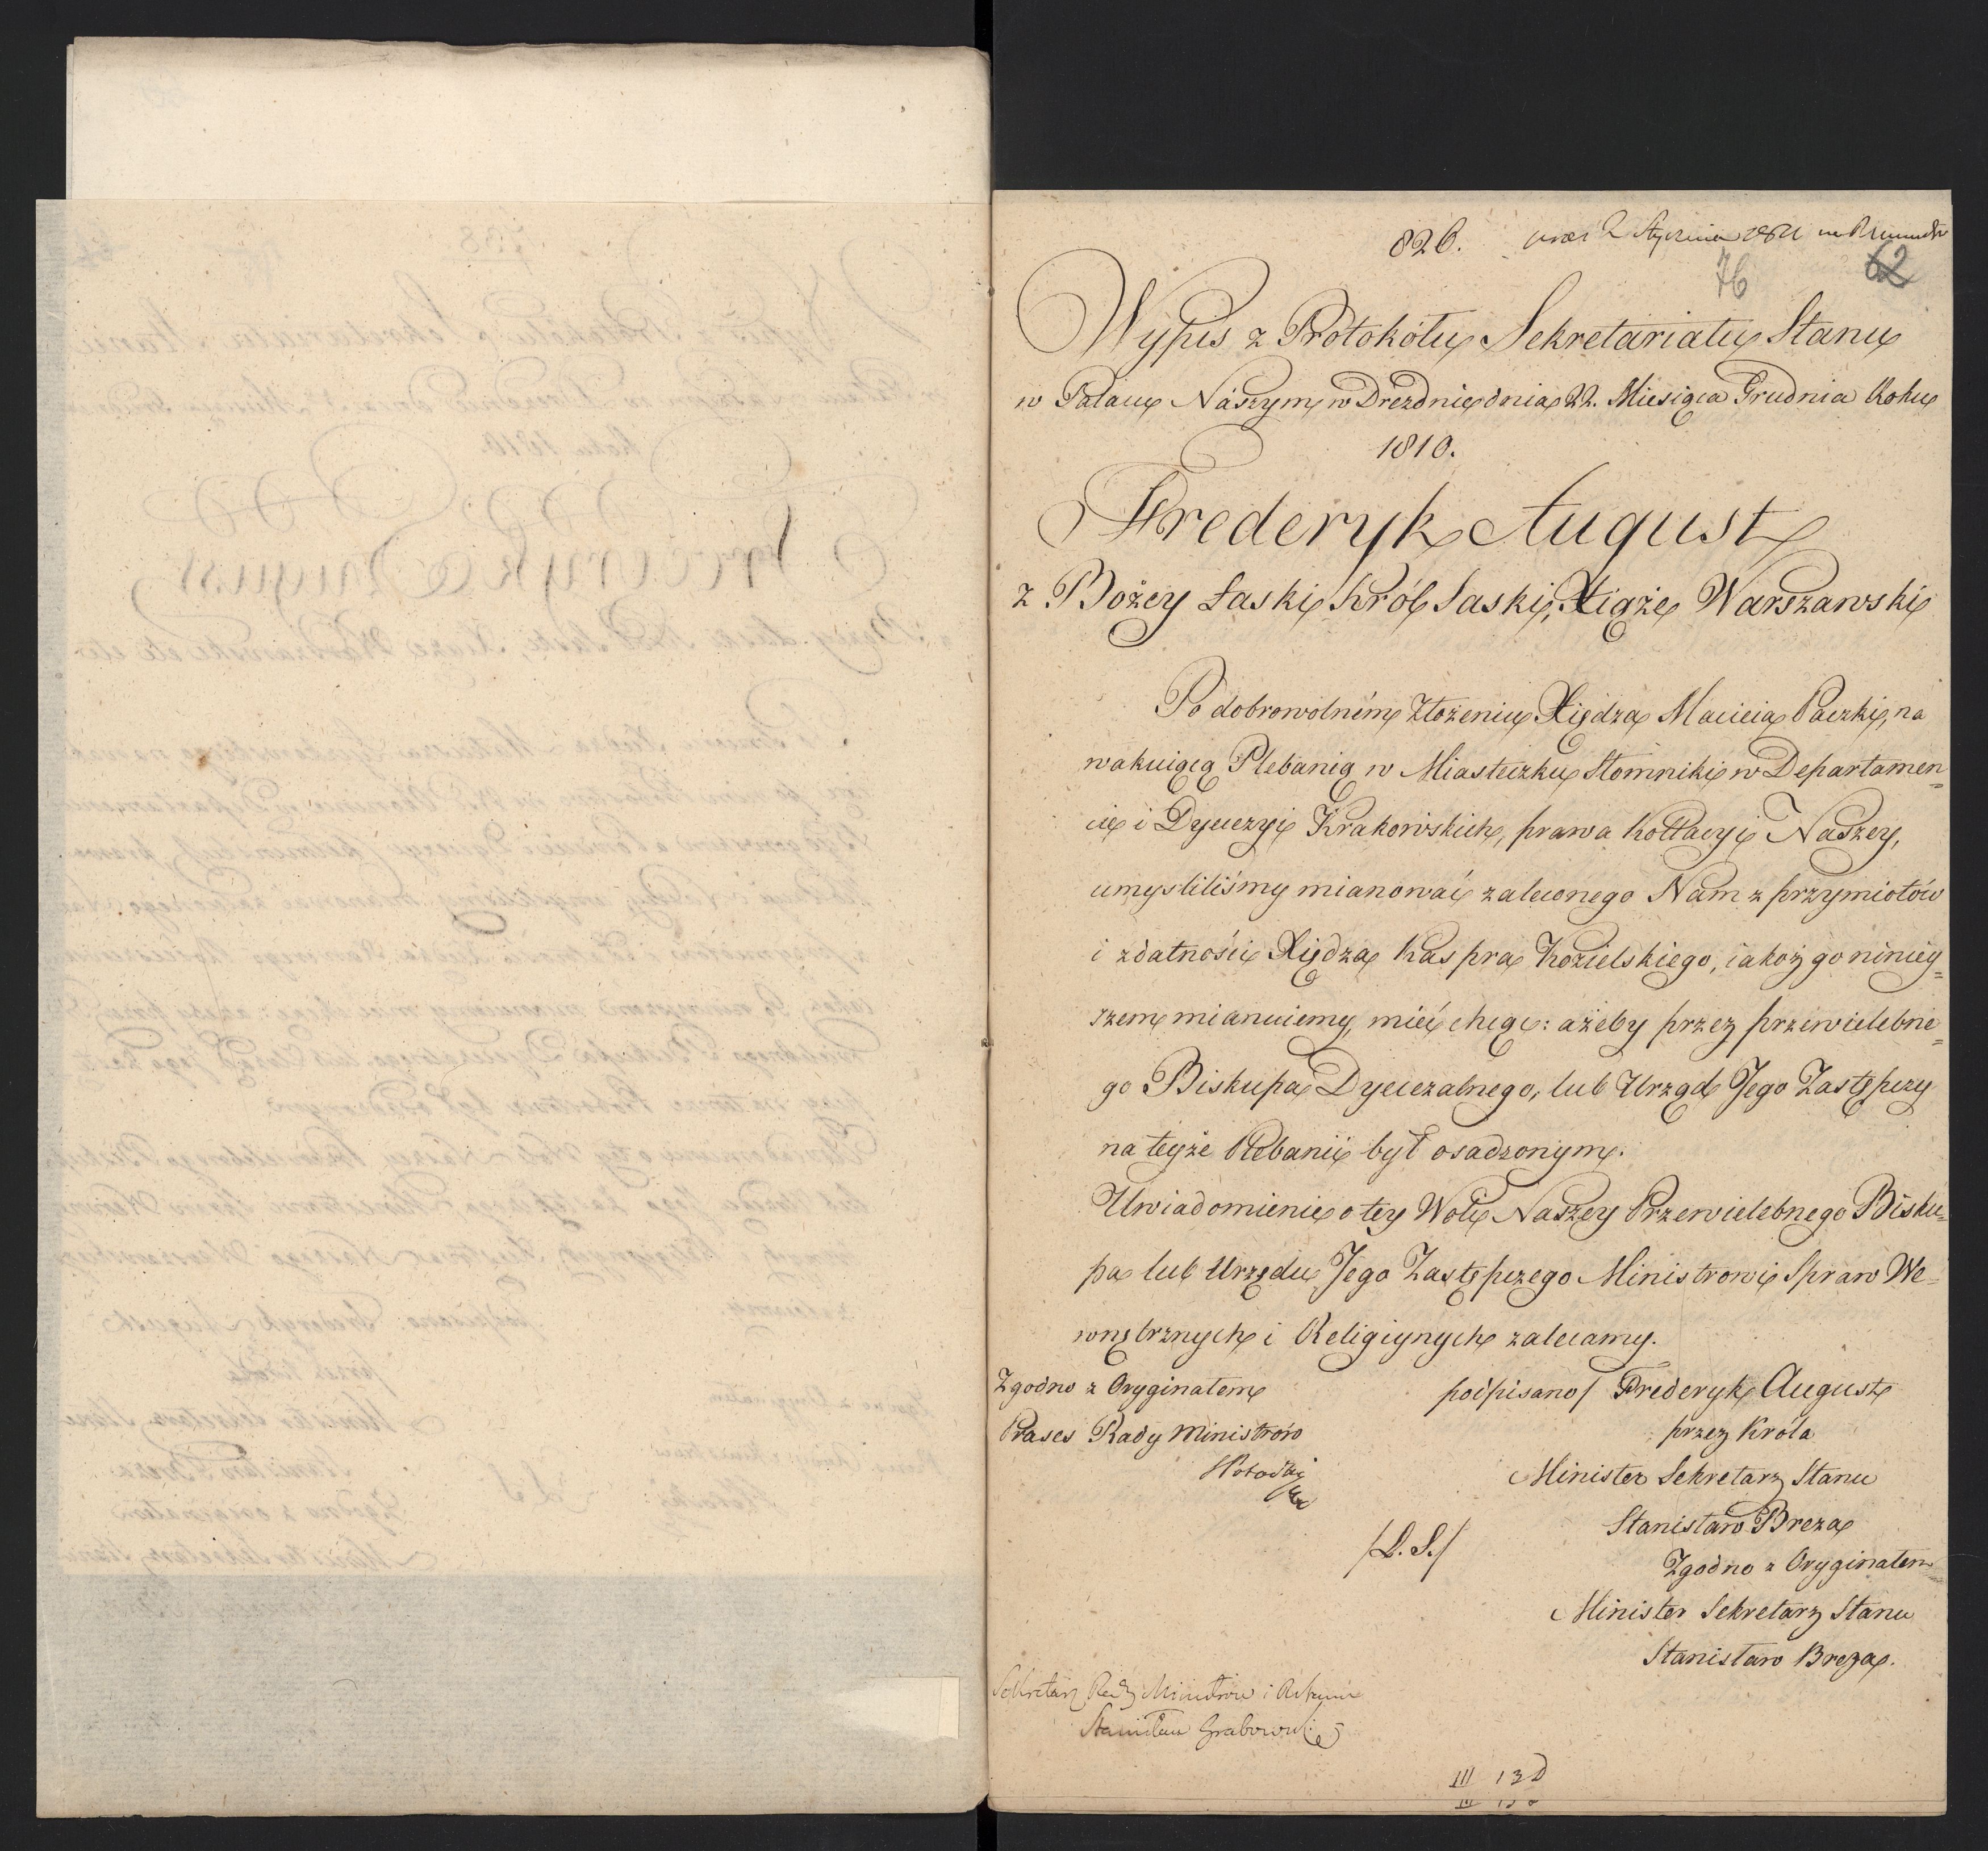 826.
2 Stycznia
76
62
Wypis z Protokółu Sekretariatu Stanu
w Pałacu Naszym w Dreźnie dnia 22. Miesiąca Grudnia Roku
1810.
Frederyk August
z Bożey Łaski Król Saski, Xiąże Warszawski
Po dobrowolném złożeniu Xiędza Macieia Paczki, na
wakuiącą Plebanią w Miasteczku Słomniki w Departamen=
cie i Dyecezyi Krakowskich, prawa Kollacyi Naszey,
umyśliliśmy mianować zaleconego Nam z przymiotów
i zdatności Xiędza Kaspra Kozielskiego, iakoż go niniey=
szem mianuiemy, mieć chcąc: ażeby przez przewielebne=
go Biskupa Dyecezalnego, lub Urząd Jego Zastępczy
na teyże Plebanii był osadzonym.
Uwiadomienie o tey Woli Naszey Przewielebnego Bisku=
pa lub Urzędu Jego Zastępczego Ministrowi Spraw We=
wnętrznych i Religiynych zalecamy.
Zgodno z Oryginałem
podpisano/ Frederyk August
Prases Rady Ministrów
przez Króla
Minister Sekretarz Stanu
Stanisław Breza
/L.S./
Zgodno z Oryginałem
Minister Sekretarz Stanu
Stanisław Breza.
Sekretarz Rady Ministrów i
Stanisław Grabowski
III 13